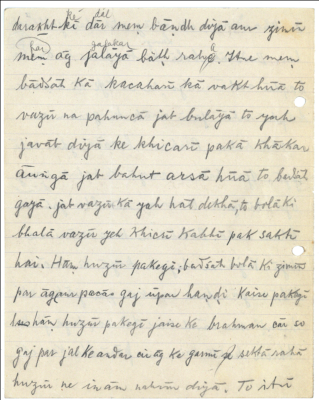 kī dāl
darakht kī ḍār meṅ bāndh diyā aur zimīṅ
par jalākar
meṅ āg jalāyā bāṭh rahā. Itne meṅ
bādśāh kā kacaharī kā vakt huā to
vazīr na pahuncā jat bulāyā to yah
javāt diyā ke khicarī pakā khākar
āūṅgā jat bahut arsā huā to bādśāh
gayā. jat vazīr kā yah hāl dekhā, to bolā ki
bhalā vazīr yeh khicrī kabhī pak saktī
hai. Hāṅ, huzūr pakegī; bādśāh bolā ki zimīn
par āg aur pacās gaj ūpar hanḍī kaise pakegī
huzūr pakegī jaise ke brahman cār so
gaj par jal ke andar āg ke garmī se sektā rahā
huzūr ne inām nahīṅ diyā. To